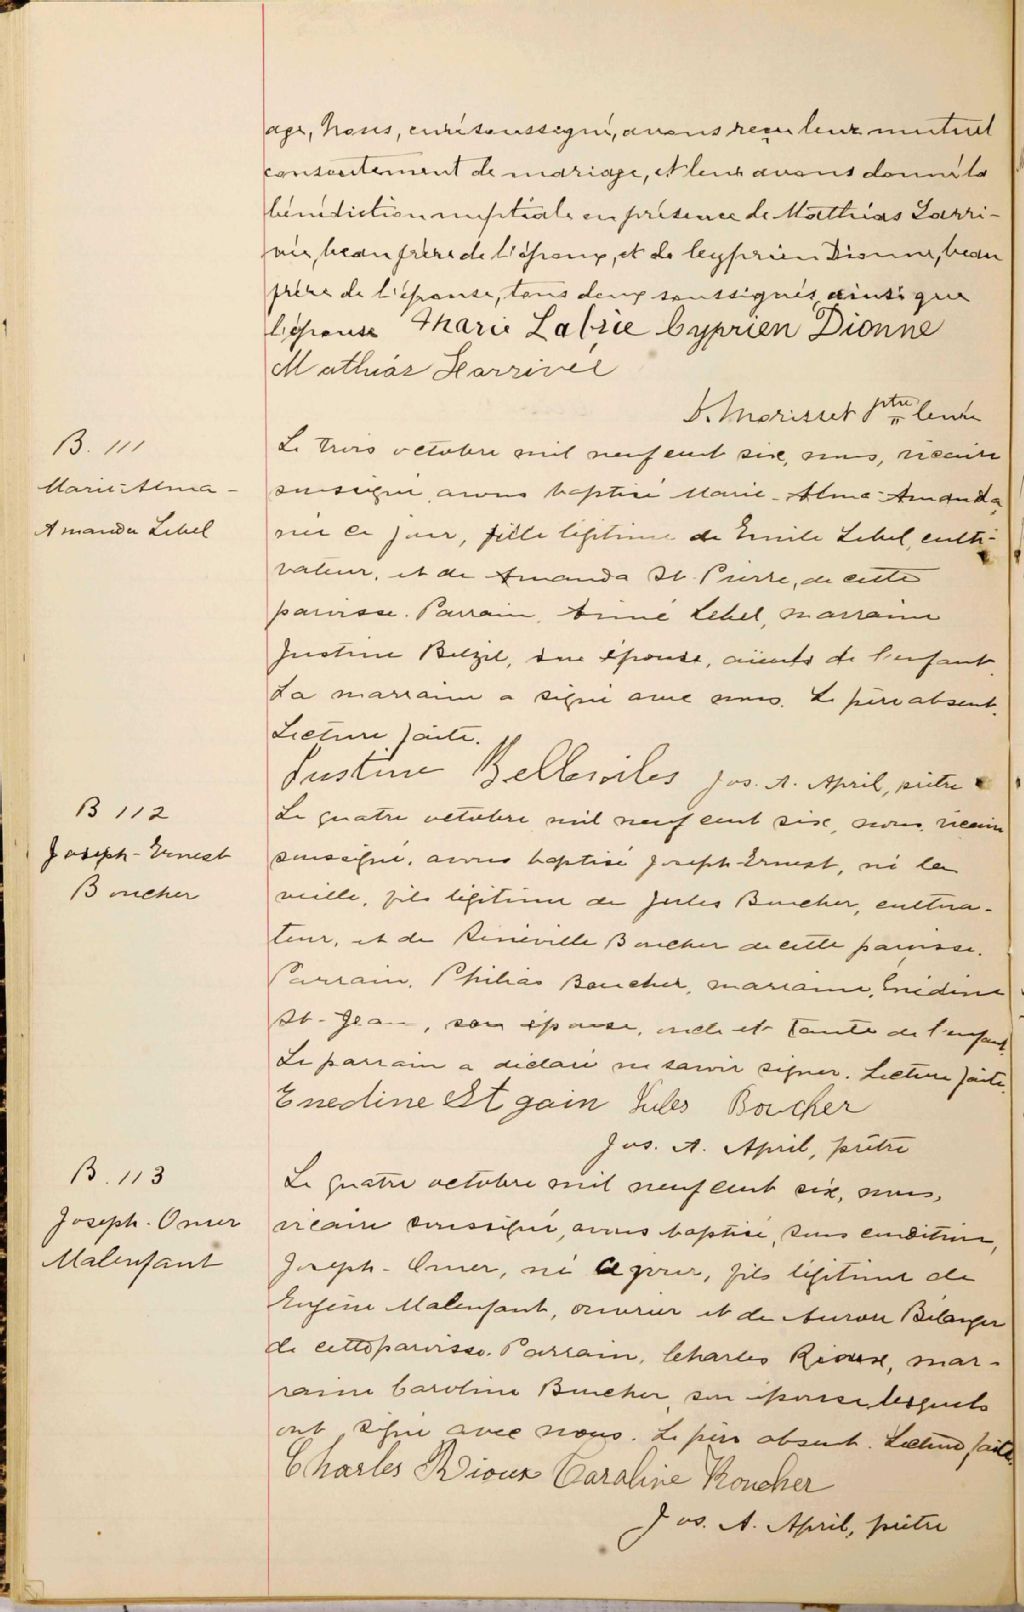 age, Nous, curé soussigné, avons reçu leur mutuel
consentement de mariage, et leur avons donné la
bénédiction nuptiale en présence de Mathias Larri-
vée, beau frère de l'époux, et de Cyprien Dionne, beau
frère de l'épouse, tous deux soussignés, ainsi que
l'épouse Marie Labrie Cyprien Dionne
Mathias Larrivée
D. Morisset ptre Curé
B. 111
Marie-Alma-
Amanda Lebel
Le trois octobre mil neuf cent six, nous, vicaire
soussigné, avons baptisé Marie-Alma-Amanda,
née ce jour, fille légitime de Emile Lebel, culti-
vateur, et de Amanda St. Pierre, de cette
paroisse. Parrain, Aimé Lebel, marraine
Justine Belzil, son épouse, aïeuls de l'enfant.
La marraine a signé avec nous. Le père absent.
Lecture faite.
Justine Bellesiles Jos. A. April, prêtre
B 112
Joseph-Ernest
Boucher
Le quatre octobre mil neuf cent six, nous, vicaire
soussigné, avons baptisé Joseph-Ernest, né la
veille, fils légitime de Jules Boucher, cultiva-
teur, et de Boucher de cette paroisse.
Parrain, Philias Boucher, marraine, Enédine
St-Jean, son épouse, oncle et tante de l'enfant.
Le parrain a déclaré ne savoir signer. Lecture faite.
Enedine St gain Jules Boucher
Jos. A. April, prêtre
B. 113
Joseph-Omer
Malenfant
Le quatre octobre mil neuf cent six, nous,
vicaire soussigné, avons baptisé, sous condition,
Joseph-Omer, né ce jour, fils légitime de
Eugène Malenfant, ouvrier et de Aurore Bélanger
de cette paroisse. Parrain, Charles Rioux, mar-
raine Caroline Boucher, son épouse, lesquels
ont signé avec nous. Le père absent. Lecture faite.
Charles Rioux Caroline Boucher
Jos. A. April, prêtre